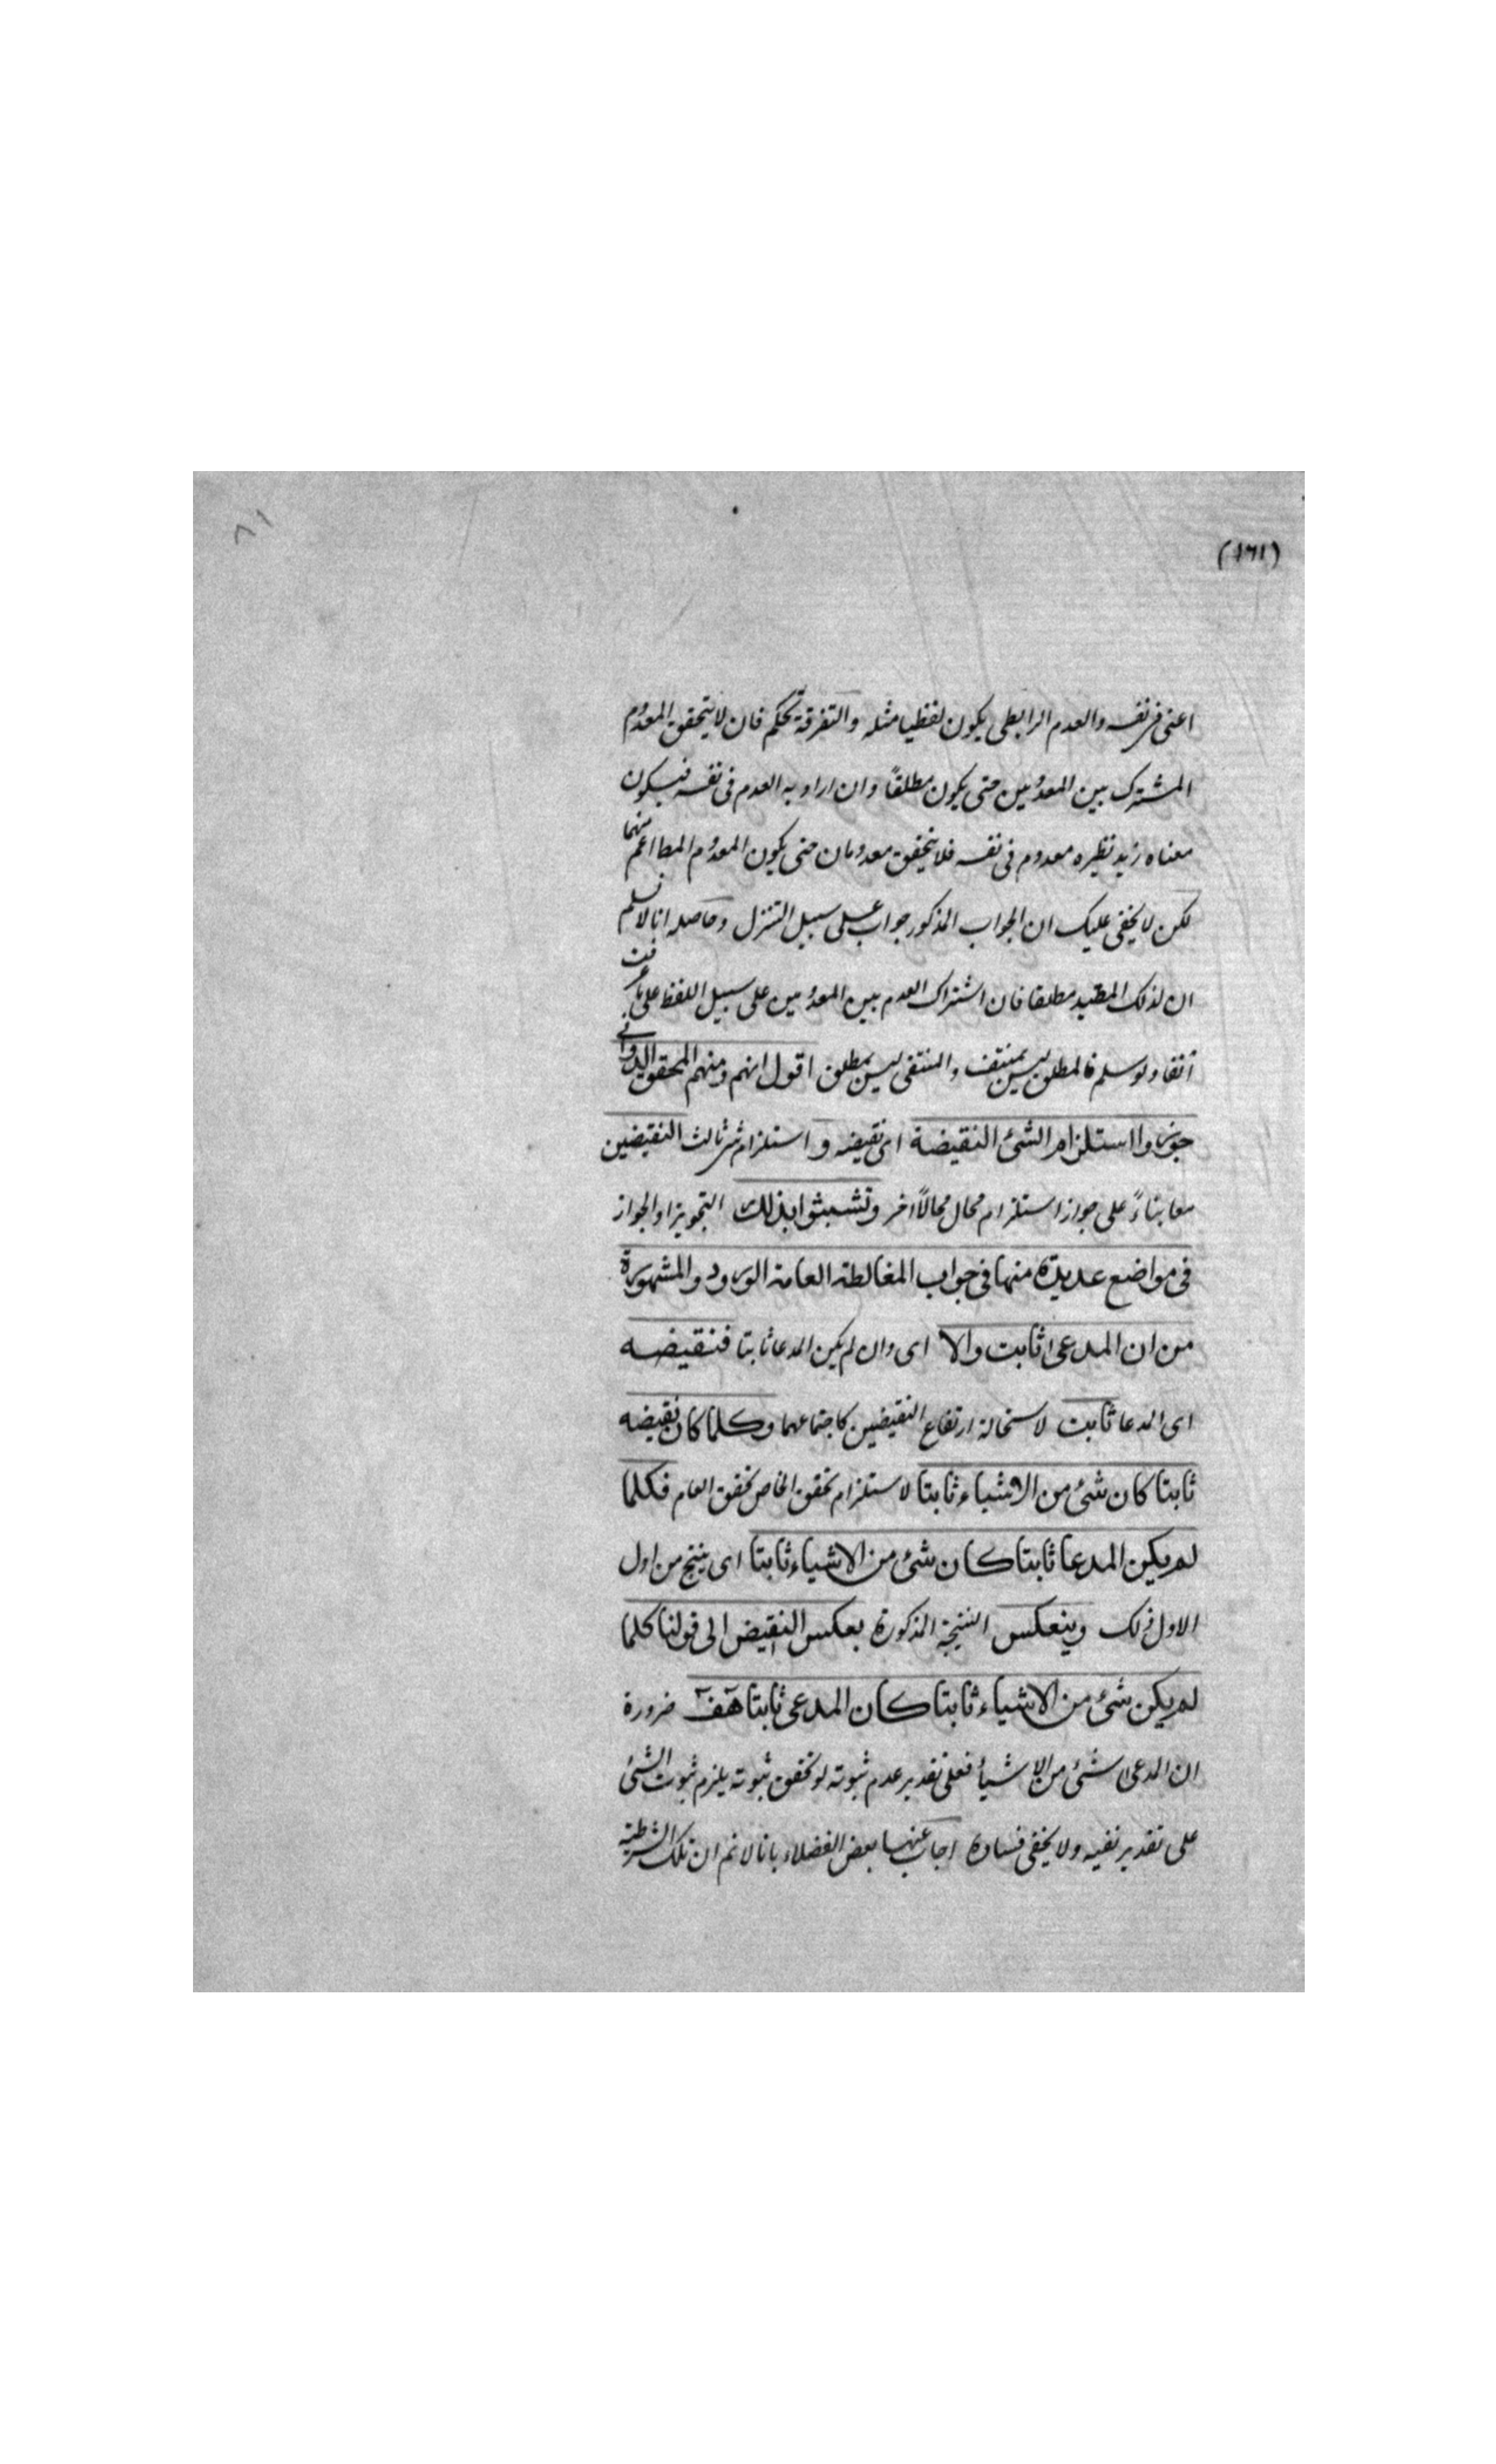 (١٦١)
٨١
اعنى فى نفسه والعدم الرابطى يكون لفظيا مثله والتفرقة تحكم فان لا يتحقق المعدوم
المشترك بين المعدومين حتى يكون مطلقاً وان اراد به العدم فى نفسه فيكون
معناه زيد نظيره معدوم فى نفسه فلا يتحقق معدومان حتى يكون المعدوم المط اعم منهما
لكن لا يخفى عليك ان الجواب المذكور جواب على سبيل التنزل وحاصله انا لا نسلم
ان لذلك المقيد مطلقا فان اشتراك العدم بين المعدومين على سبيل اللفظ على ما عرفت
آنفا ولو سلم فالمطلق ليس بمنتف والمنتفى ليس بمطلق اقول انهم ومنهم المحقق الدوانى
جوزوا استلزام الشئ النقيضة اى نقيضه و استلزام شئ ثالث النقيضين
معا بناءً على جواز استلزام محال محالاً اخر وتشبثوا بذلك التجويز او الجواز
فى مواضع عديدة منها فى جواب المغالطة العامة الورود والمشهورة
من ان المدعى ثابت والا اى وان لم يكن المدعا ثابتا فنقيضه
اى المدعا ثابت لاستحالة ارتفاع النقيضين كاجتماعهما وكلما كان نقيضه
ثابتا كان شئ من الاشياء ثابتا لاستلزام تحقق الخاص تحقق العام فكلما
لم يكن المدعا ثابتا كان شئ من الاشياء ثابتا اى ينتج من اول
الاول ذلك وينعكس النتيجة المذكورة بعكس النقيض الى قولنا كلما
لم يكن شئ من الاشياء ثابتا كان المدعى ثابتا هف ضرورة
ان المدعى شئ من الاشياء فعلى تقدير عدم ثبوته لو تحقق ثبوته يلزم ثبوت الشئ
على تقدير نفيه ولا يخفى فساده اجاب عنها بعض الفضلاء بانا لا نم ان تلك الشرطية